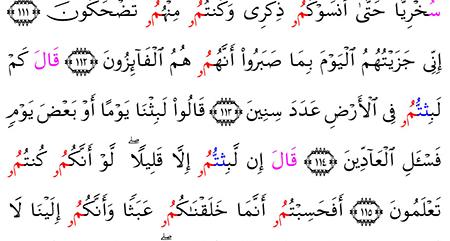 سُخْرِيًّا حَتَّىٰٓ أَنسَوْكُمُۥ ذِكْرِى وَكُنتُمُۥ مِنْهُمُۥ تَضْحَكُونَ ﴿١١١﴾
إِنِّى جَزَيْتُهُمُ ٱلْيَوْمَ بِمَا صَبَرُوٓا۟ أَنَّهُمُۥ هُمُ ٱلْفَآئِزُونَ ﴿١١٢﴾ قَالَ كَمْ
لَبِثتُّمُۥ فِى ٱلْأَرْضِ عَدَدَ سِنِينَ ﴿١١٣﴾ قَالُوا۟ لَبِثْنَا يَوْمًا أَوْ بَعْضَ يَوْمٍ
فَسْـَٔلِ ٱلْعَآدِّينَ ﴿١١٤﴾ قَالَ إِن لَّبِثتُّمُۥ إِلَّا قَلِيلًا ۖ لَّوْ أَنَّكُمُۥ كُنتُمُۥ
تَعْلَمُونَ ﴿١١٥﴾ أَفَحَسِبْتُمُۥ أَنَّمَا خَلَقْنَٰكُمُۥ عَبَثًا وَأَنَّكُمُۥ إِلَيْنَا لَا